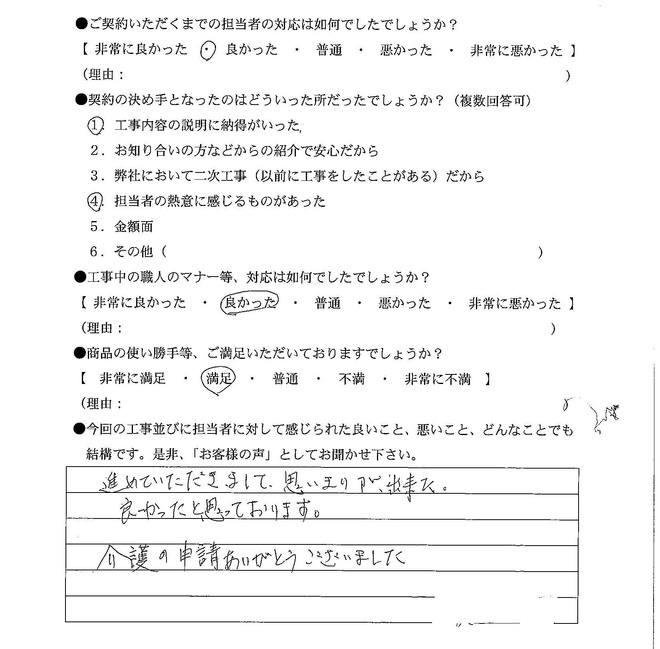 ●ご契約いただくまでの担当者の対応は如何でしたでしょうか？
【 非常に良かった ・ 良かった ・ 普通 ・ 悪かった ・ 非常に悪かった 】
（理由： ）
●契約の決め手となったのはどういった所だったでしょうか？（複数回答可）
1．工事内容の説明に納得がいった
2．お知り合いの方などからの紹介で安心だから
3．弊社において二次工事（以前に工事をしたことがある）だから
4．担当者の熱意に感じるものがあった
5．金額面
6．その他（ ）
●工事中の職人のマナー等、対応は如何でしたでしょうか？
【 非常に良かった ・ 良かった ・ 普通 ・ 悪かった ・ 非常に悪かった 】
（理由： ）
●商品の使い勝手等、ご満足いただいておりますでしょうか？
【 非常に満足 ・ 満足 ・ 普通 ・ 不満 ・ 非常に不満 】
（理由：
●今回の工事並びに担当者に対して感じられた良いこと、悪いこと、どんなことでも
結構です。是非、「お客様の声」としてお聞かせ下さい。
進めていただきまして、思いきりが、出来た。
良かったと思っております。
介護の申請ありがとうございました